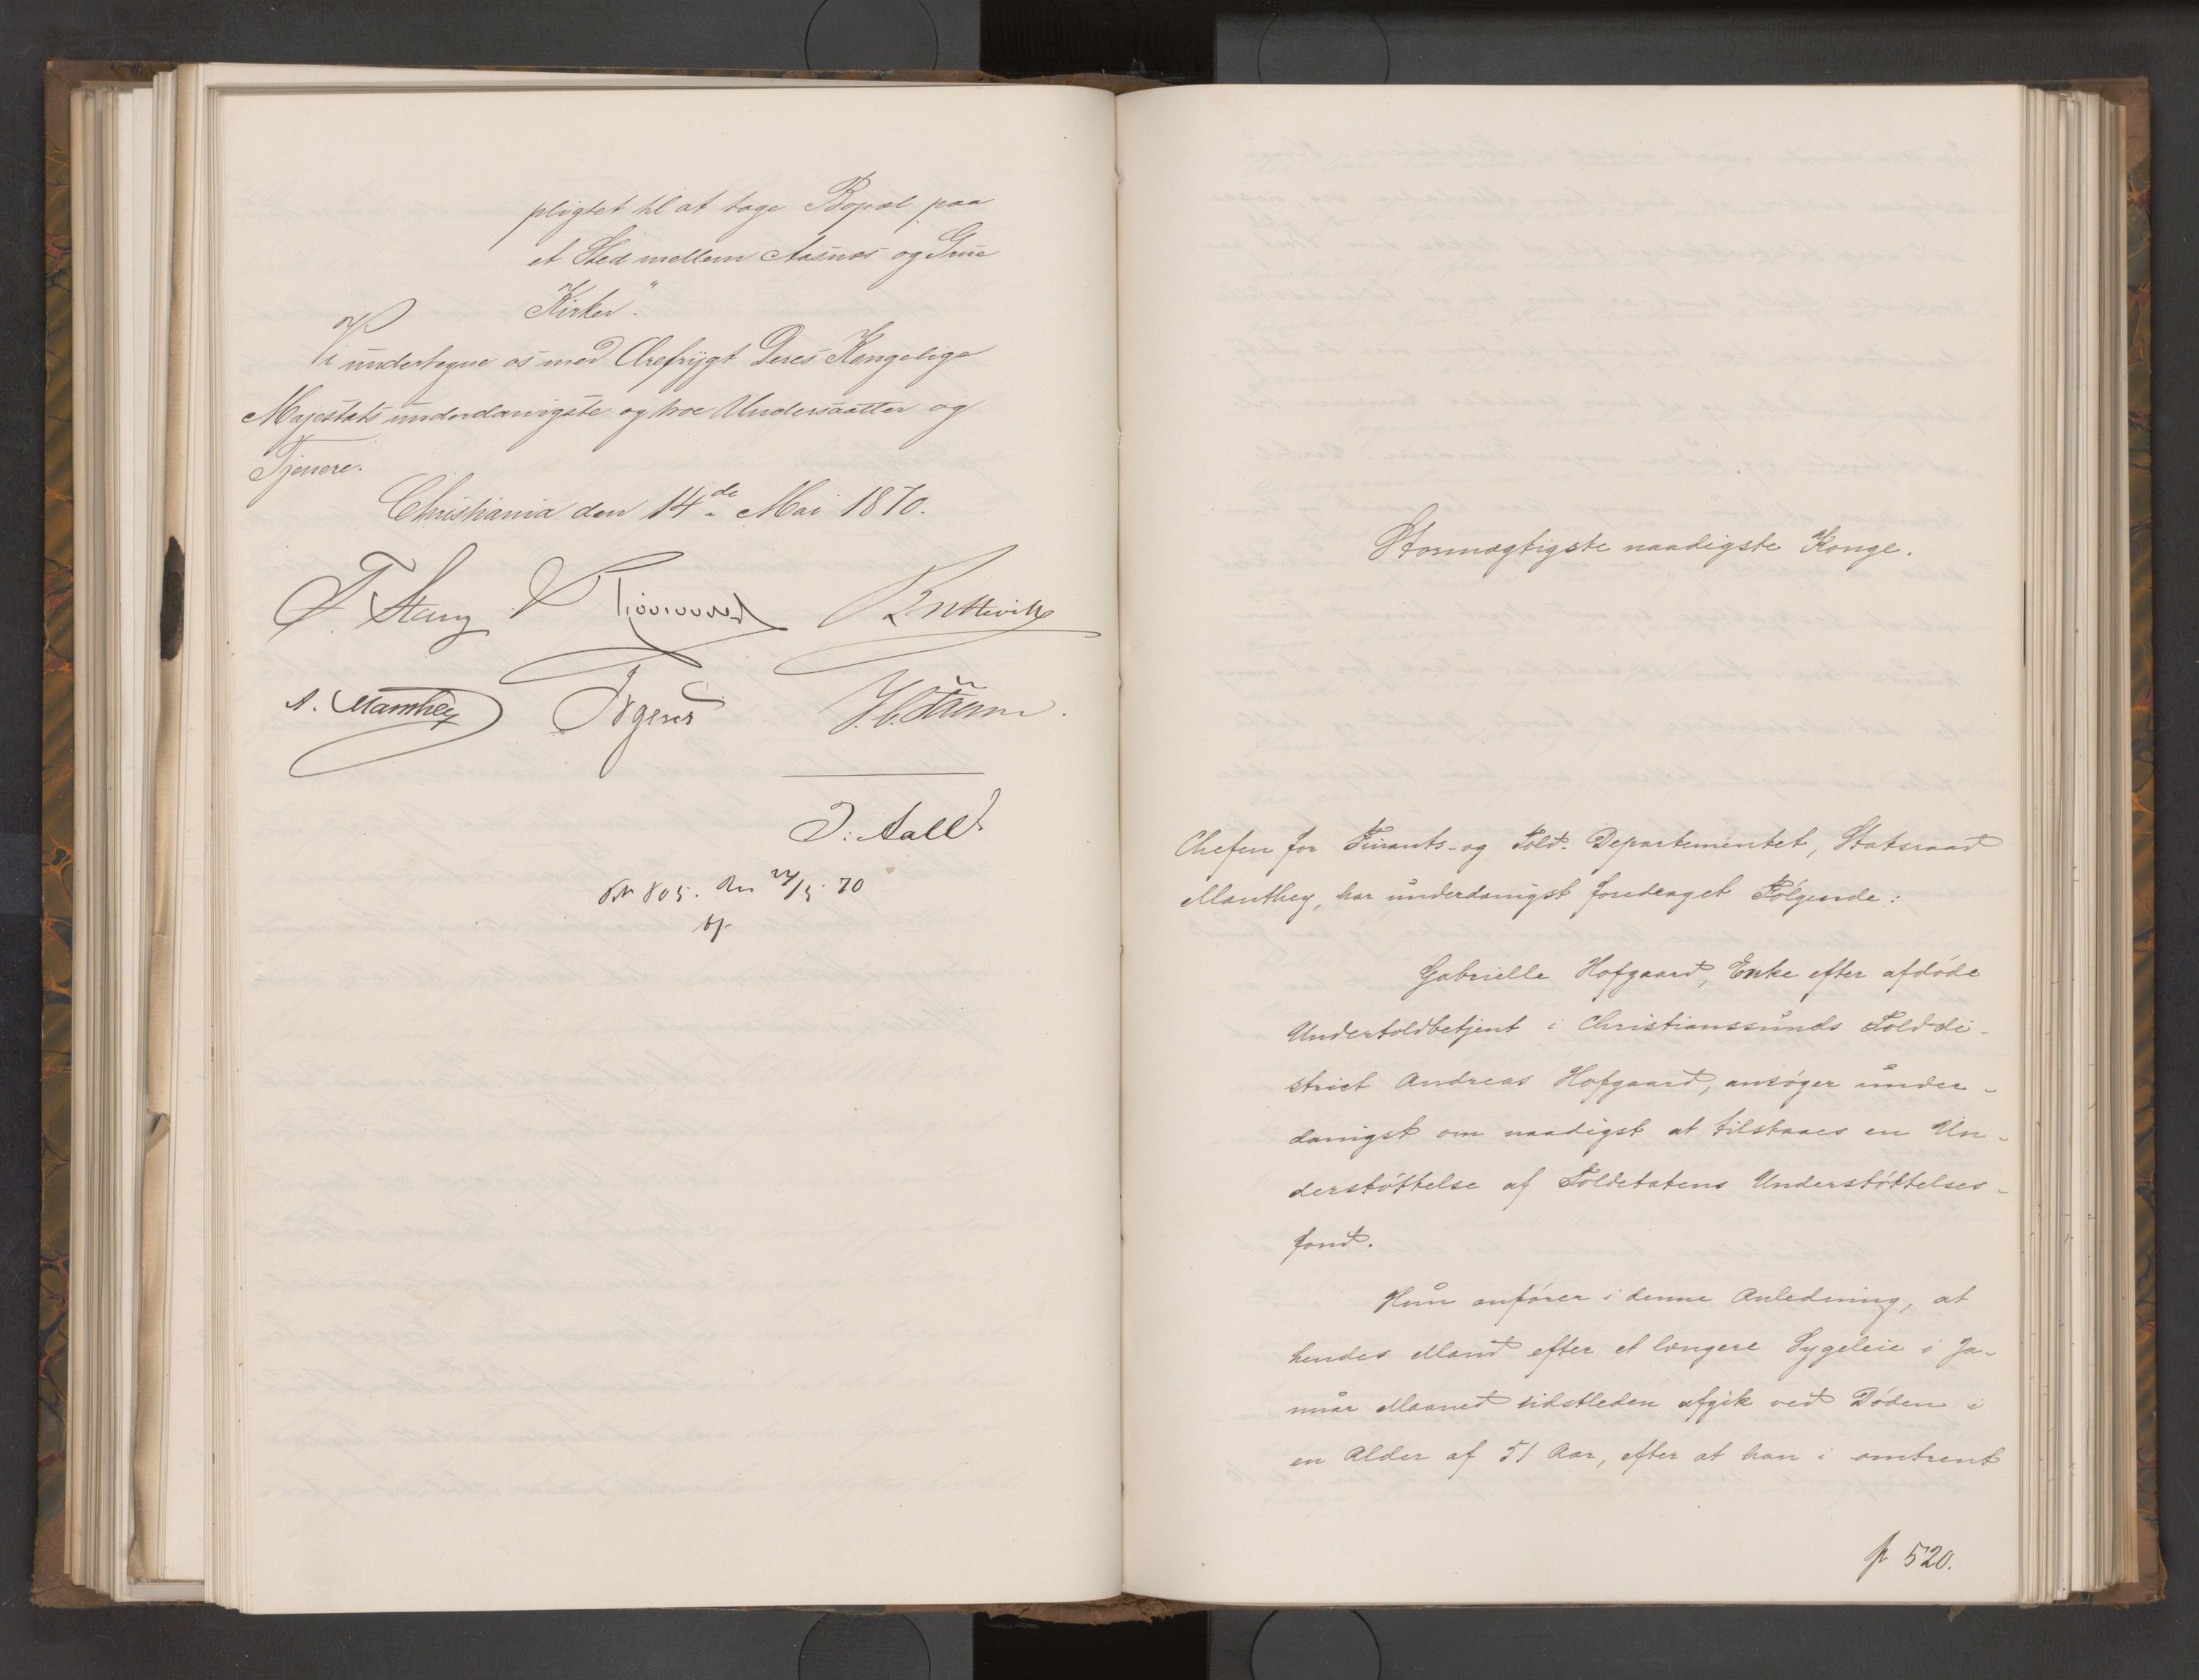 pligtet til at tage Bopæl paa
et Sted mellem Aasnæs og Grue
Kirker."
Vi undertegne os med Ærefrygt Deres Kongelige
Majestæts underdanigste og troe Undersaatter og
Tjenere.
Christiania den 14de Mai 1870.
F. Stang
A. Manthey Irgens
J. Aall
No 805. den 24/5 70
Stormægtigste naadigste Konge.
Chefen for Finants- og Told-Departementet, Statsraad
Manthey, har underdanigst foredraget Følgende:
Gabrielle Hofgaard, Enke efter afdøde
Undertoldbetjent i Christianssunds Tolddi-
strict Andreas Hofgaard, ansøger under-
danigst om naadigst at tilstaaes en Un-
derstøttelse af Toldetatens Understøttelses-
fond.
Hun anfører i denne Anledning, at
hendes Mand efter et længere Sygeleie i Ja-
nuar Maaned sidstleden afgik ved Døden i
en Alder af 51 Aar, efter at han i omtrent
p 520.